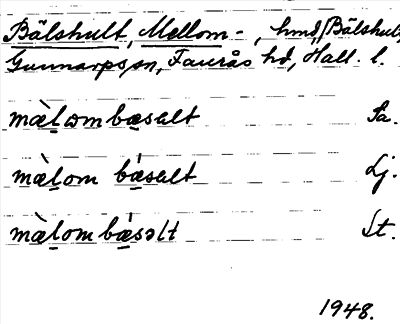 Bälshult, Mellom-, hmd, Bälshult,
Gunnarps sn, Faurås hd, Hall. l.
mæ̀lom bæselt Sa.
mæ̀lom bǽselt Lj.
mæ̀lom bǽsəlt St.
1948.